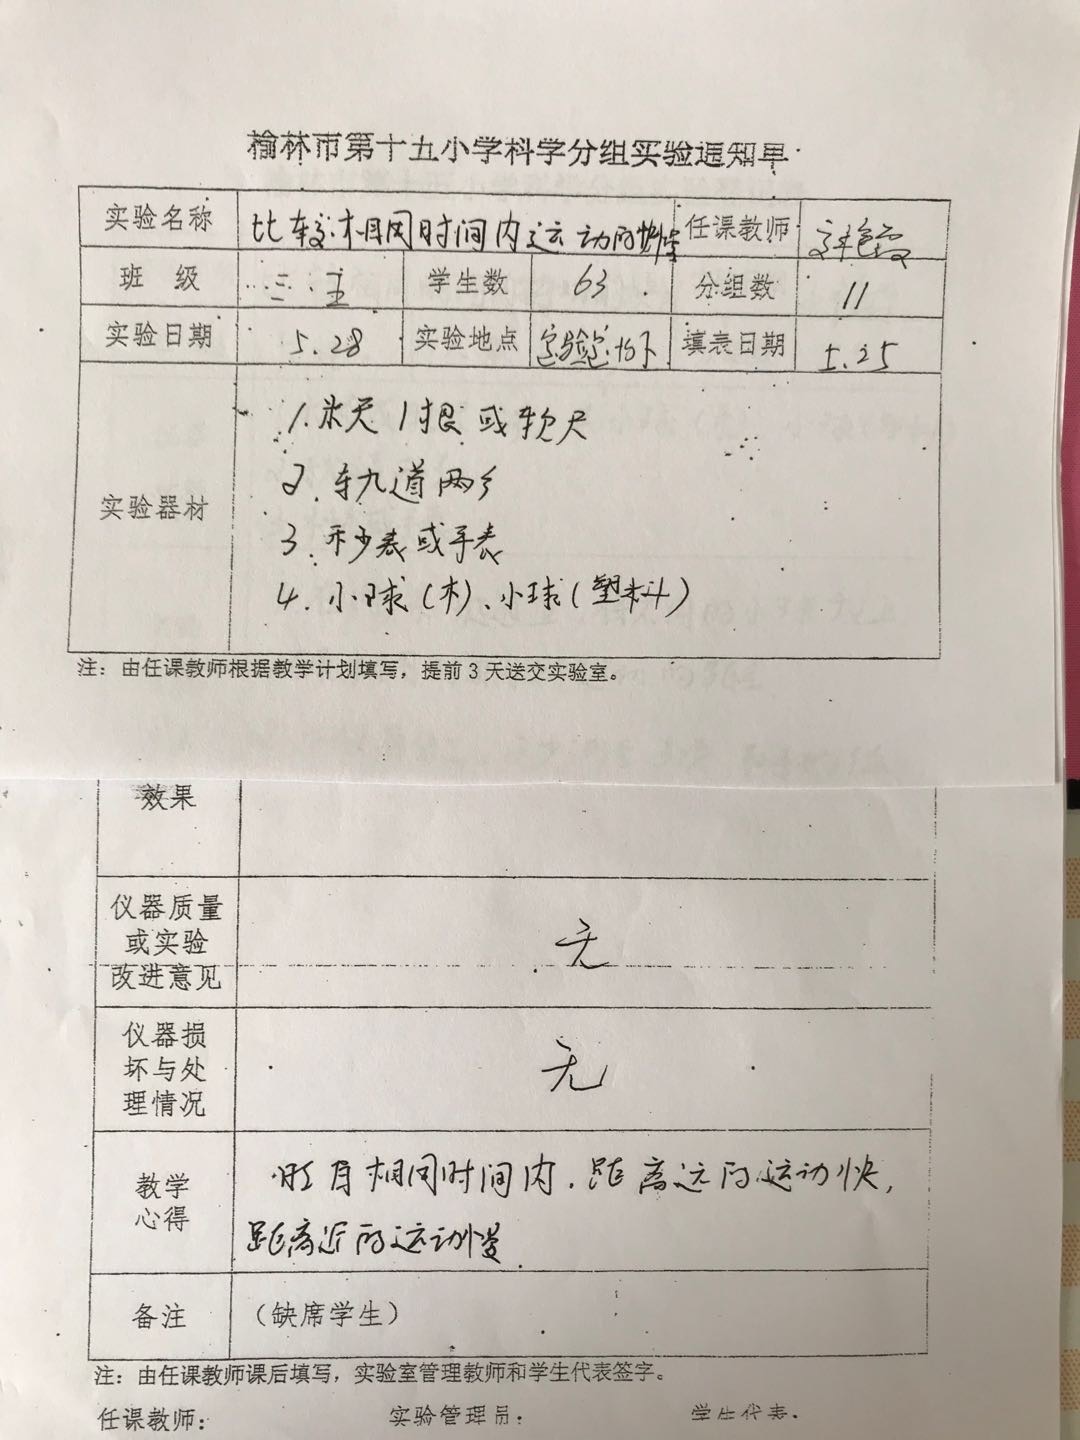 榆林市第十五小学科学分组实验通知单
实验名称 比较相同时间内运动的快慢 任课教师
班 级 三.五 学生数 63 分组数 11
实验日期 5.28 实验地点 实验室 填表日期 5.25
实验器材
1.米尺1根或软尺
2.轨道两个
3.秒表或手表
4.小球(木)、小球(塑料)
注：由任课教师根据教学计划填写，提前3天送交实验室。
效果
仪器质量或实验改进意见 无
仪器损坏与处理情况 无
教学心得
相同时间内.距离远的运动快,
距离近的运动慢
备注 （缺席学生）
注：由任课教师课后填写，实验室管理教师和学生代表签字。
任课教师： 实验管理员： 学生代表：